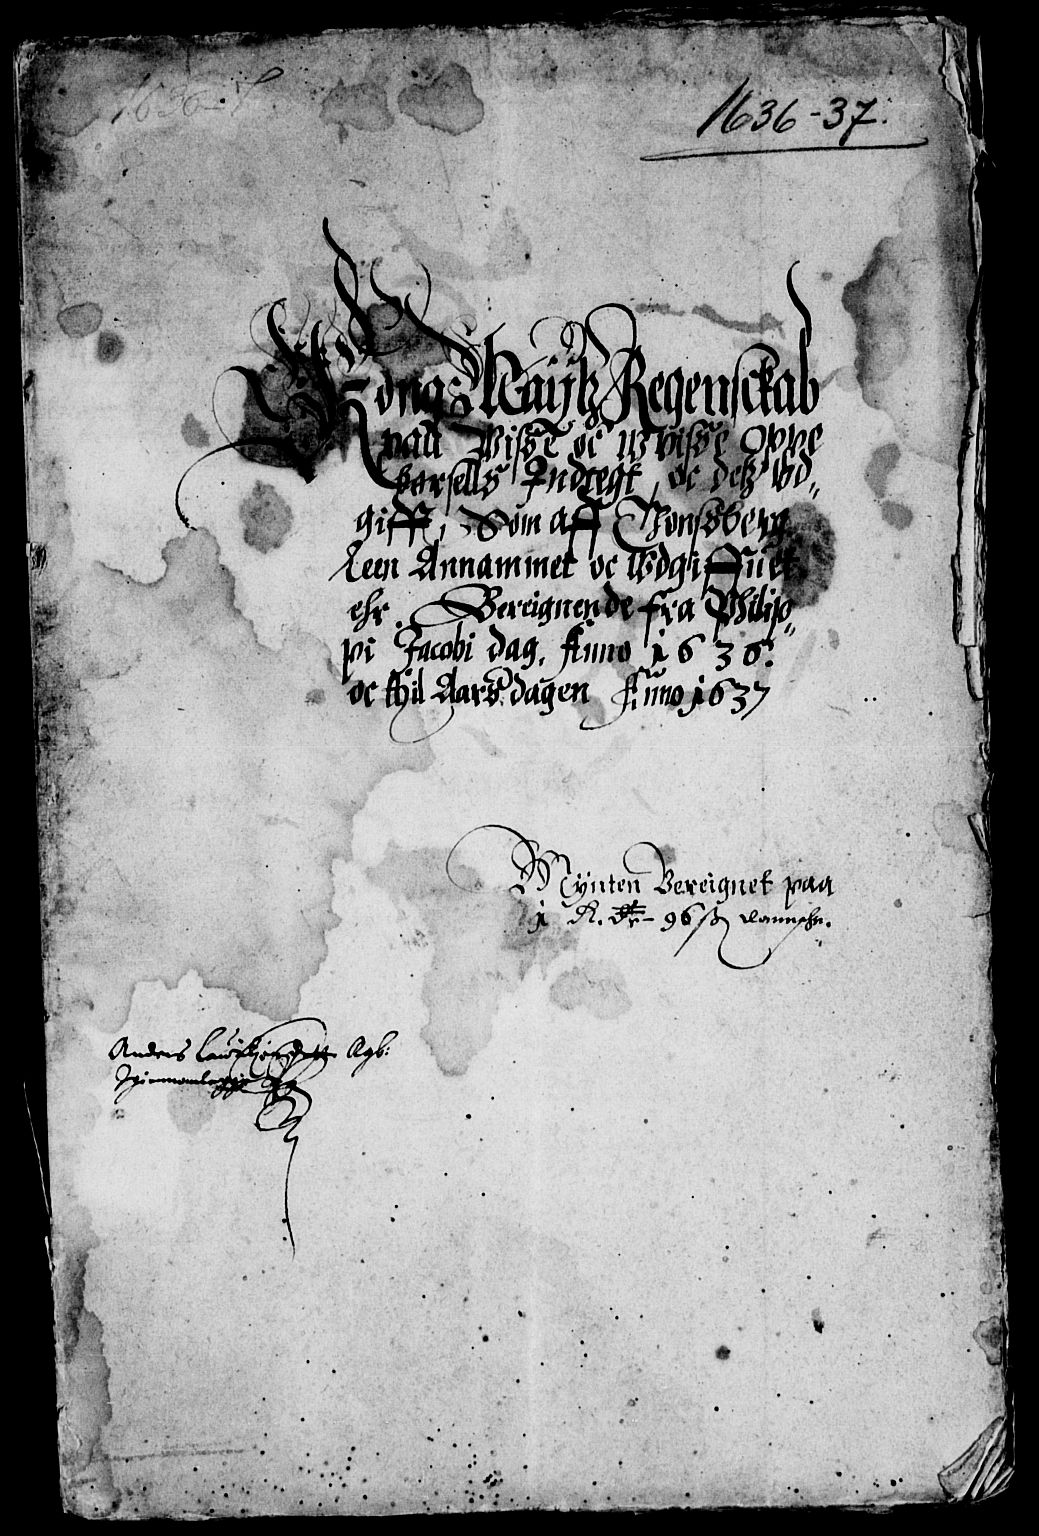 1636-37.
Kong: Maÿtz Regensckab
paa Visse oc Wvisse Oppe
børsells Indtegt, oc detz Vd„
gifft, Som aff Tonsberg
Leen Annammet oc Wdgiffuet
ehr. Bereignende fra Philip„
pi Jacobi dag, Anno 1636.
oc thil Aars dagen Anno 1637
Mÿnten Bereignet paa
1 R. dr - 96 ß Dannsche.
Anders Egb: